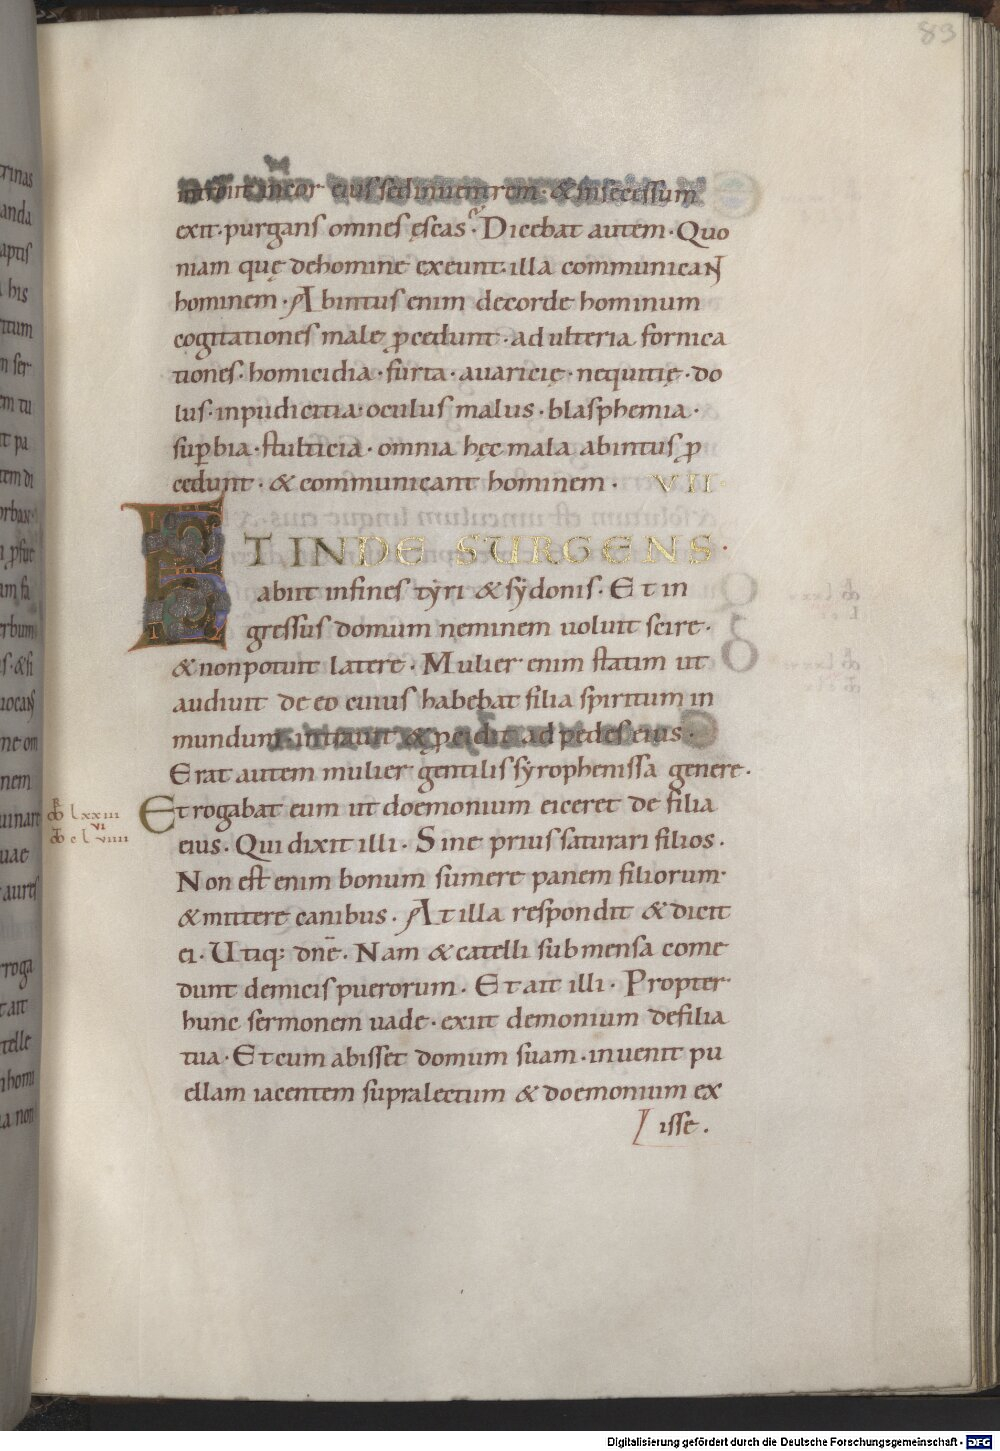 83
introit incor eius sed inuentrem · & insecessum
exit · purgans omnes ęscas · Dicebat autem · Quo
niam quę dehomine exeunt · illa communicant
hominem · Abintus enim decorde hominum
cogitationes male ꝓcedunt · adulteria fornica
tiones · homicidia · furta · auaricię · nequitię · do
lus · inpudicitia · oculus malus · blasphemia ·
suꝑbia · stulticia · omnia hęc mala abintus ꝓ
cedunt · & communicant hominem · VII ·
ET INDE SURGENS ·
abiit infines tyri & sydonis · Et in
gressus domum neminem uoluit scire ·
& nonpotuit latere · Mulier enim statim ut
audiuit de eo cuius habebat filia spiritum in
mundum intrauit & ꝓcidit ad pedes eius ·
Erat autem mulier gentilis syrophenissa genere ·
Et rogabat eum ut doemonium eiceret de filia
eius · Qui dixit illi · Sine prius saturari filios ·
Non est enim bonum sumere panem filiorum ·
& mittere canibus · At illa respondit & dicit
ei · Utiq; dn̄e · Nam & catelli submensa come
dunt demicis puerorum · Et ait illi · Propter
hunc sermonem uade · exiit demonium defilia
tua · Et cum abisset domum suam · inuenit pu
ellam iacentem supralectum & doemonium ex
isse ·
lxxiii
vi
Digitalisierung gefördert durch die Deutsche Forschungsgemeinschaft - DFG